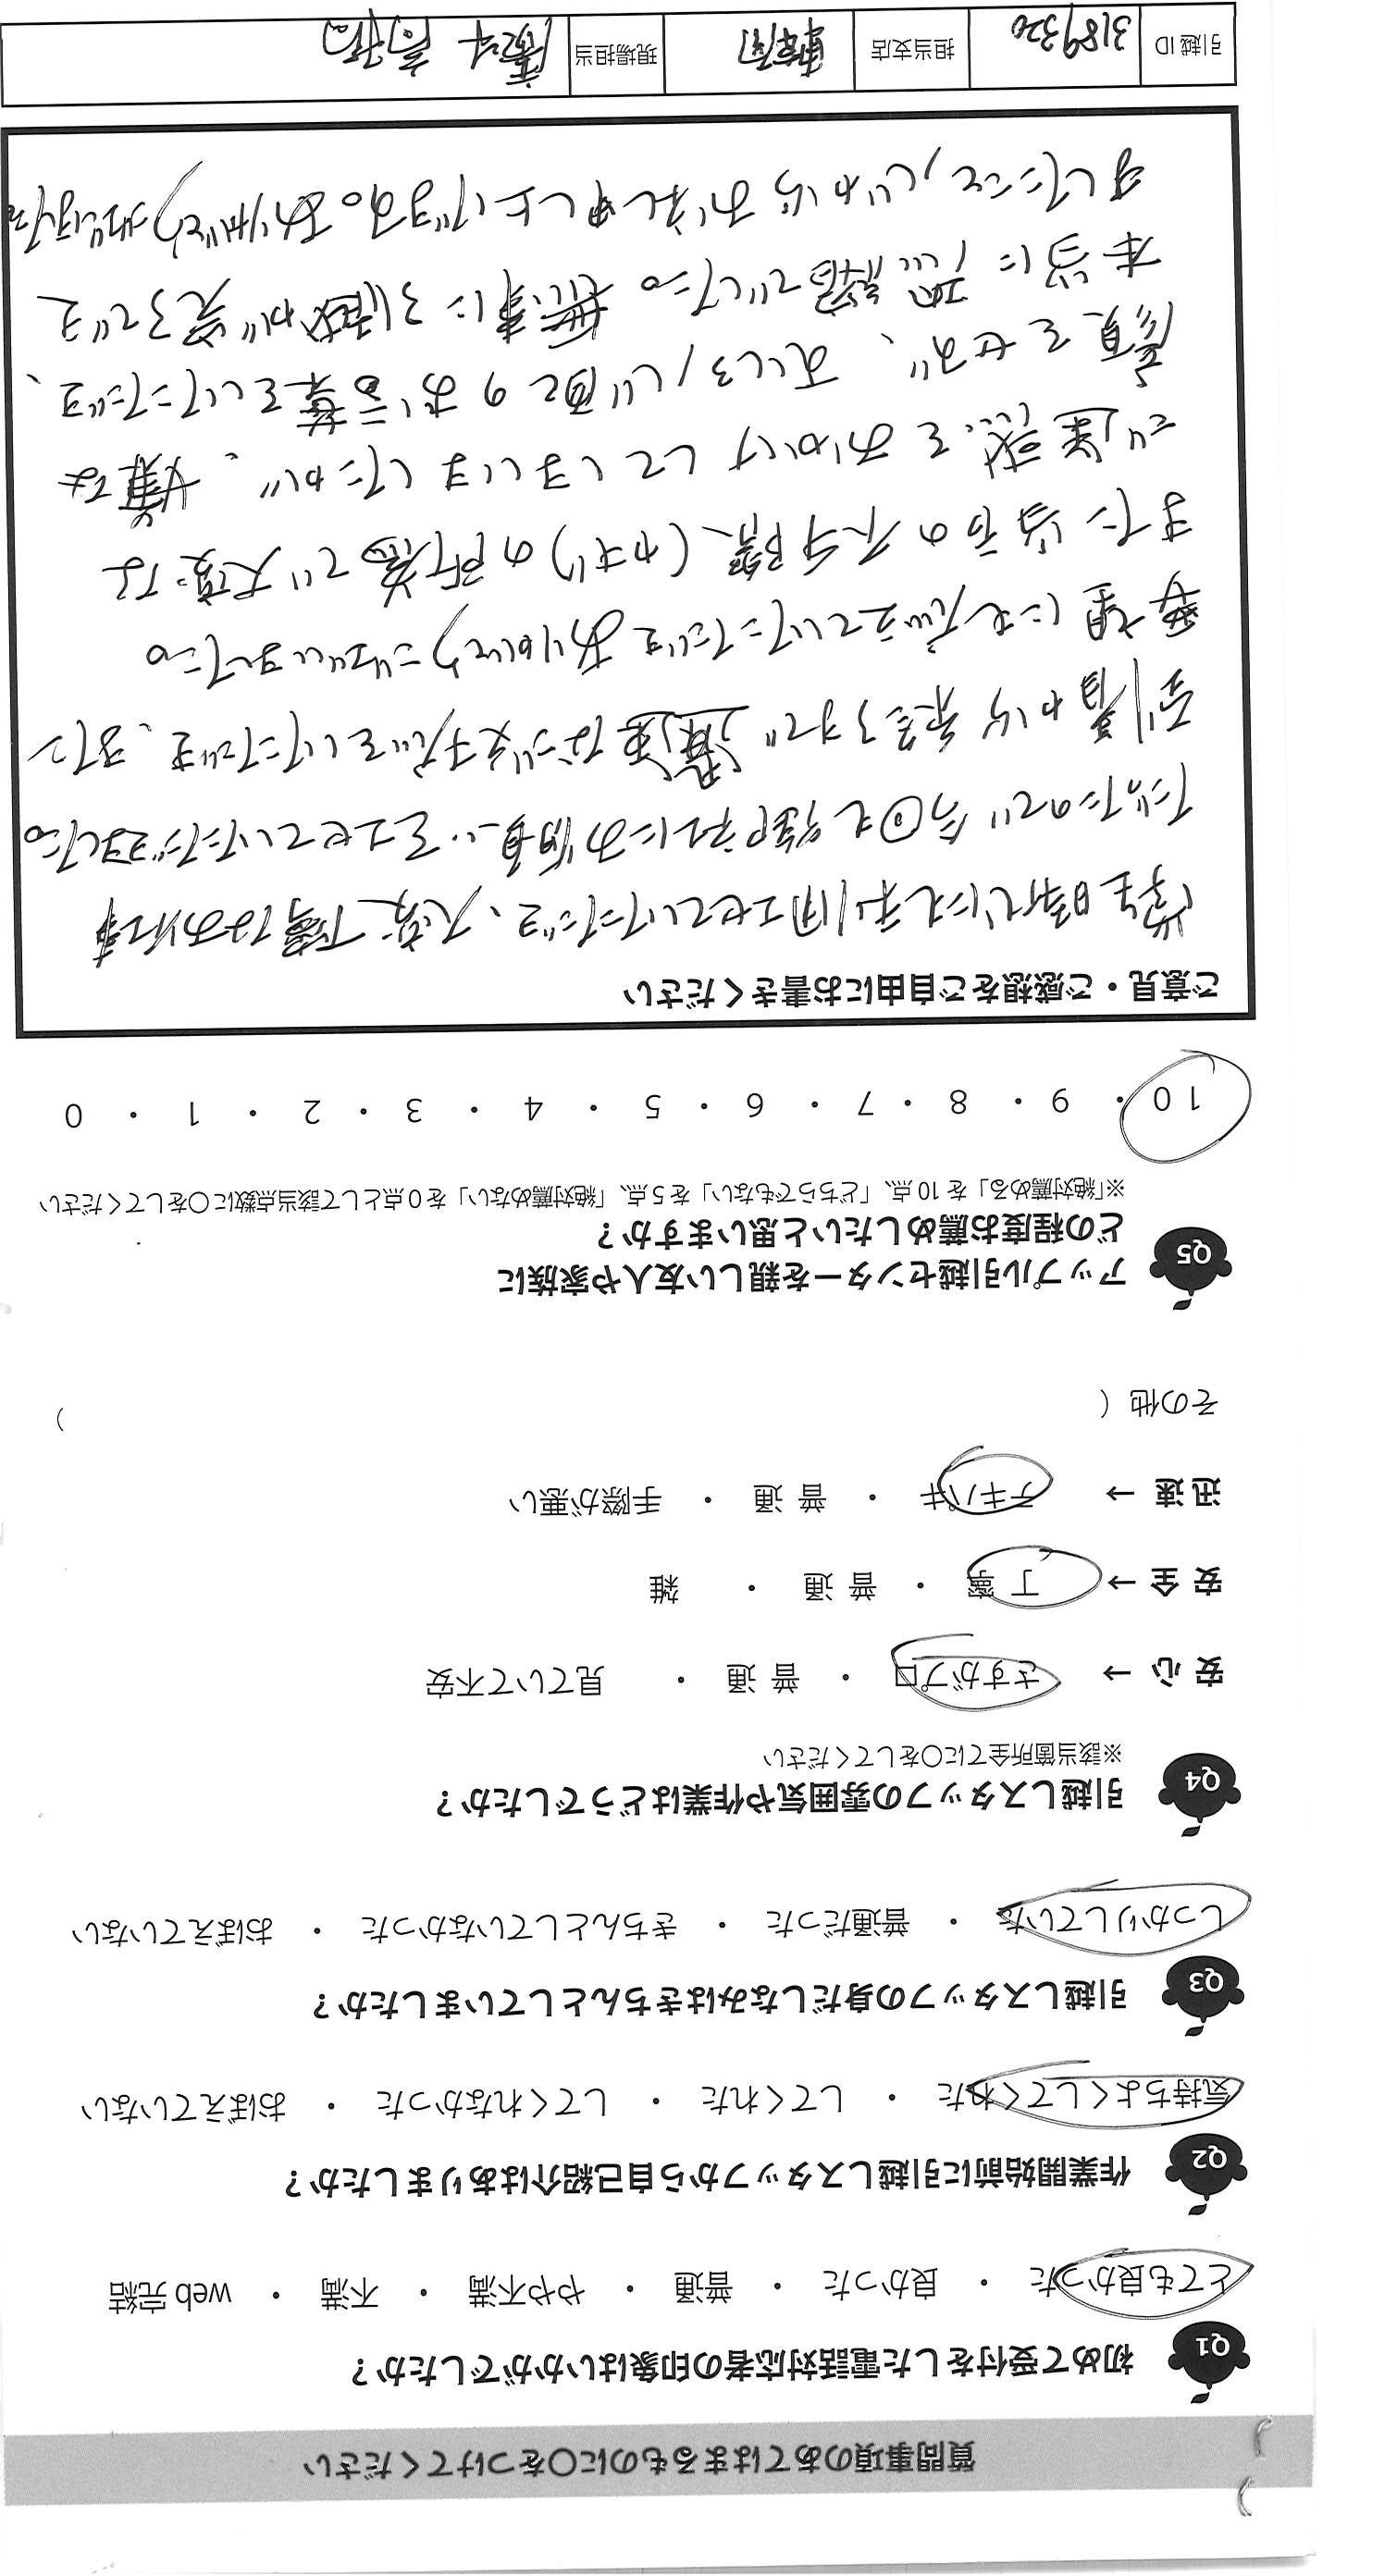 質問事項のあてはまるものに○をつけてください
Q1 初めて受付をした電話対応者の印象はいかがでしたか?
とても良かった ・ 良かった ・ 普通 ・ やや不満 ・ 不満 ・ web 完結
Q2 作業開始前に引越しスタッフから自己紹介はありましたか?
気持ちよくしてくれた ・ してくれた ・ してくれなかった ・ おぼえていない
Q3 引越しスタッフの身だしなみはきちんとしていましたか?
しっかりしていた ・ 普通だった ・ きちんとしていなかった ・ おぼえていない
Q4 引越しスタッフの雰囲気や作業はどうでしたか?
※該当箇所全てに○をしてください
安 心 → さすがプロ ・ 普 通 ・ 見ていて不安
安 全 → 丁 寧 ・ 普 通 ・ 雑
迅 速 → テキパキ ・ 普 通 ・ 手際が悪い
その他 ( )
Q5 アップル引越センターを親しい友人や家族に
どの程度お薦めしたいと思いますか?
※「絶対薦める」を 10 点、「どちらでもない」を 5 点、「絶対薦めない」を 0 点として該当点数に○をしてください
10 ・ 9 ・ 8 ・ 7 ・ 6 ・ 5 ・ 4 ・ 3 ・ 2 ・ 1 ・ 0
ご意見・ご感想をご自由にお書きください
学生時代にも利用させていただき、大変丁寧なお仕事
だったので今回も御社にお願いをさせていただきました。
到着から完了まで迅速なご対応をしていただき、また
要望にも応えていただきありがとうございました。
また当方の不手際(カギ)の所為で大変な
ご迷惑をおかけしてしまいましたが、嫌な
顔をせず、むしろ心配のお言葉をいただき、
本当に恐縮でした。無事に引越が完了でき
ましたこと、心からお礼申し上げます。ありがとうございました
引越 ID 3189320 担当支店 現場担当